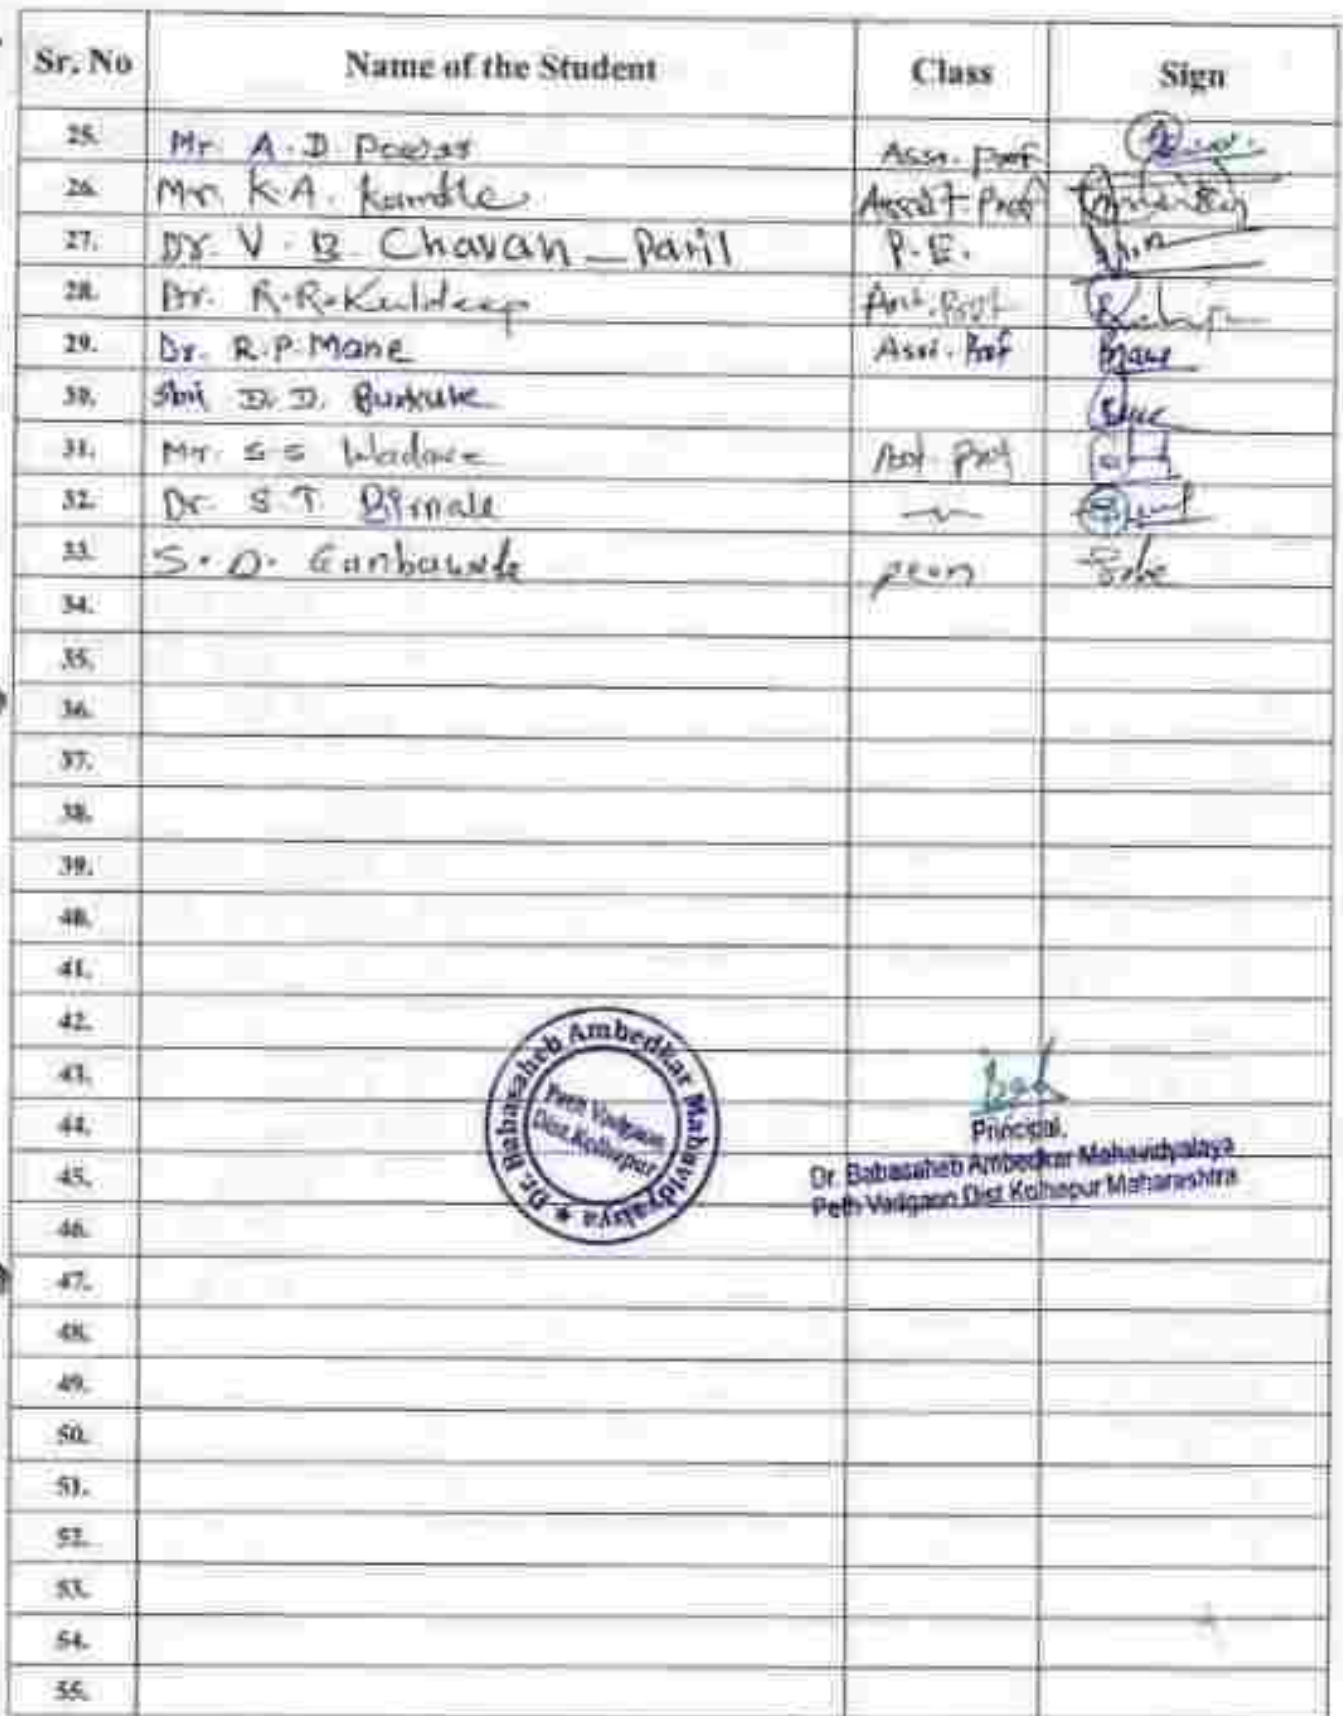 Sr. No Name of the Student Class Sign
25. Mr. A.D. Powar Assi. Prof
26. Mr. K.A. Kamble Assist. Prof
27. Dr. V.B. Chavan - Patil P.E.
28. Dr. R.R. Kuldeep
29. Dr. R.P. Mane Assi. Prof Mane
30. Shri D.D.
31. Mr. S S Asst. Prof
32. Dr. S.T. Birnale
33. S.D. peon
34.
35.
36.
37.
38.
39.
40.
41.
42.
43.
44.
45.
46.
47.
48.
49.
50.
51.
52.
53.
54.
55.
Dr. Babasaheb Ambedkar Mahavidyalaya ★
Peth Vadgaon
Dist Kolhapur
Principal,
Dr. Babasaheb Ambedkar Mahavidyalaya
Peth Vadgaon Dist Kolhapur Maharashtra